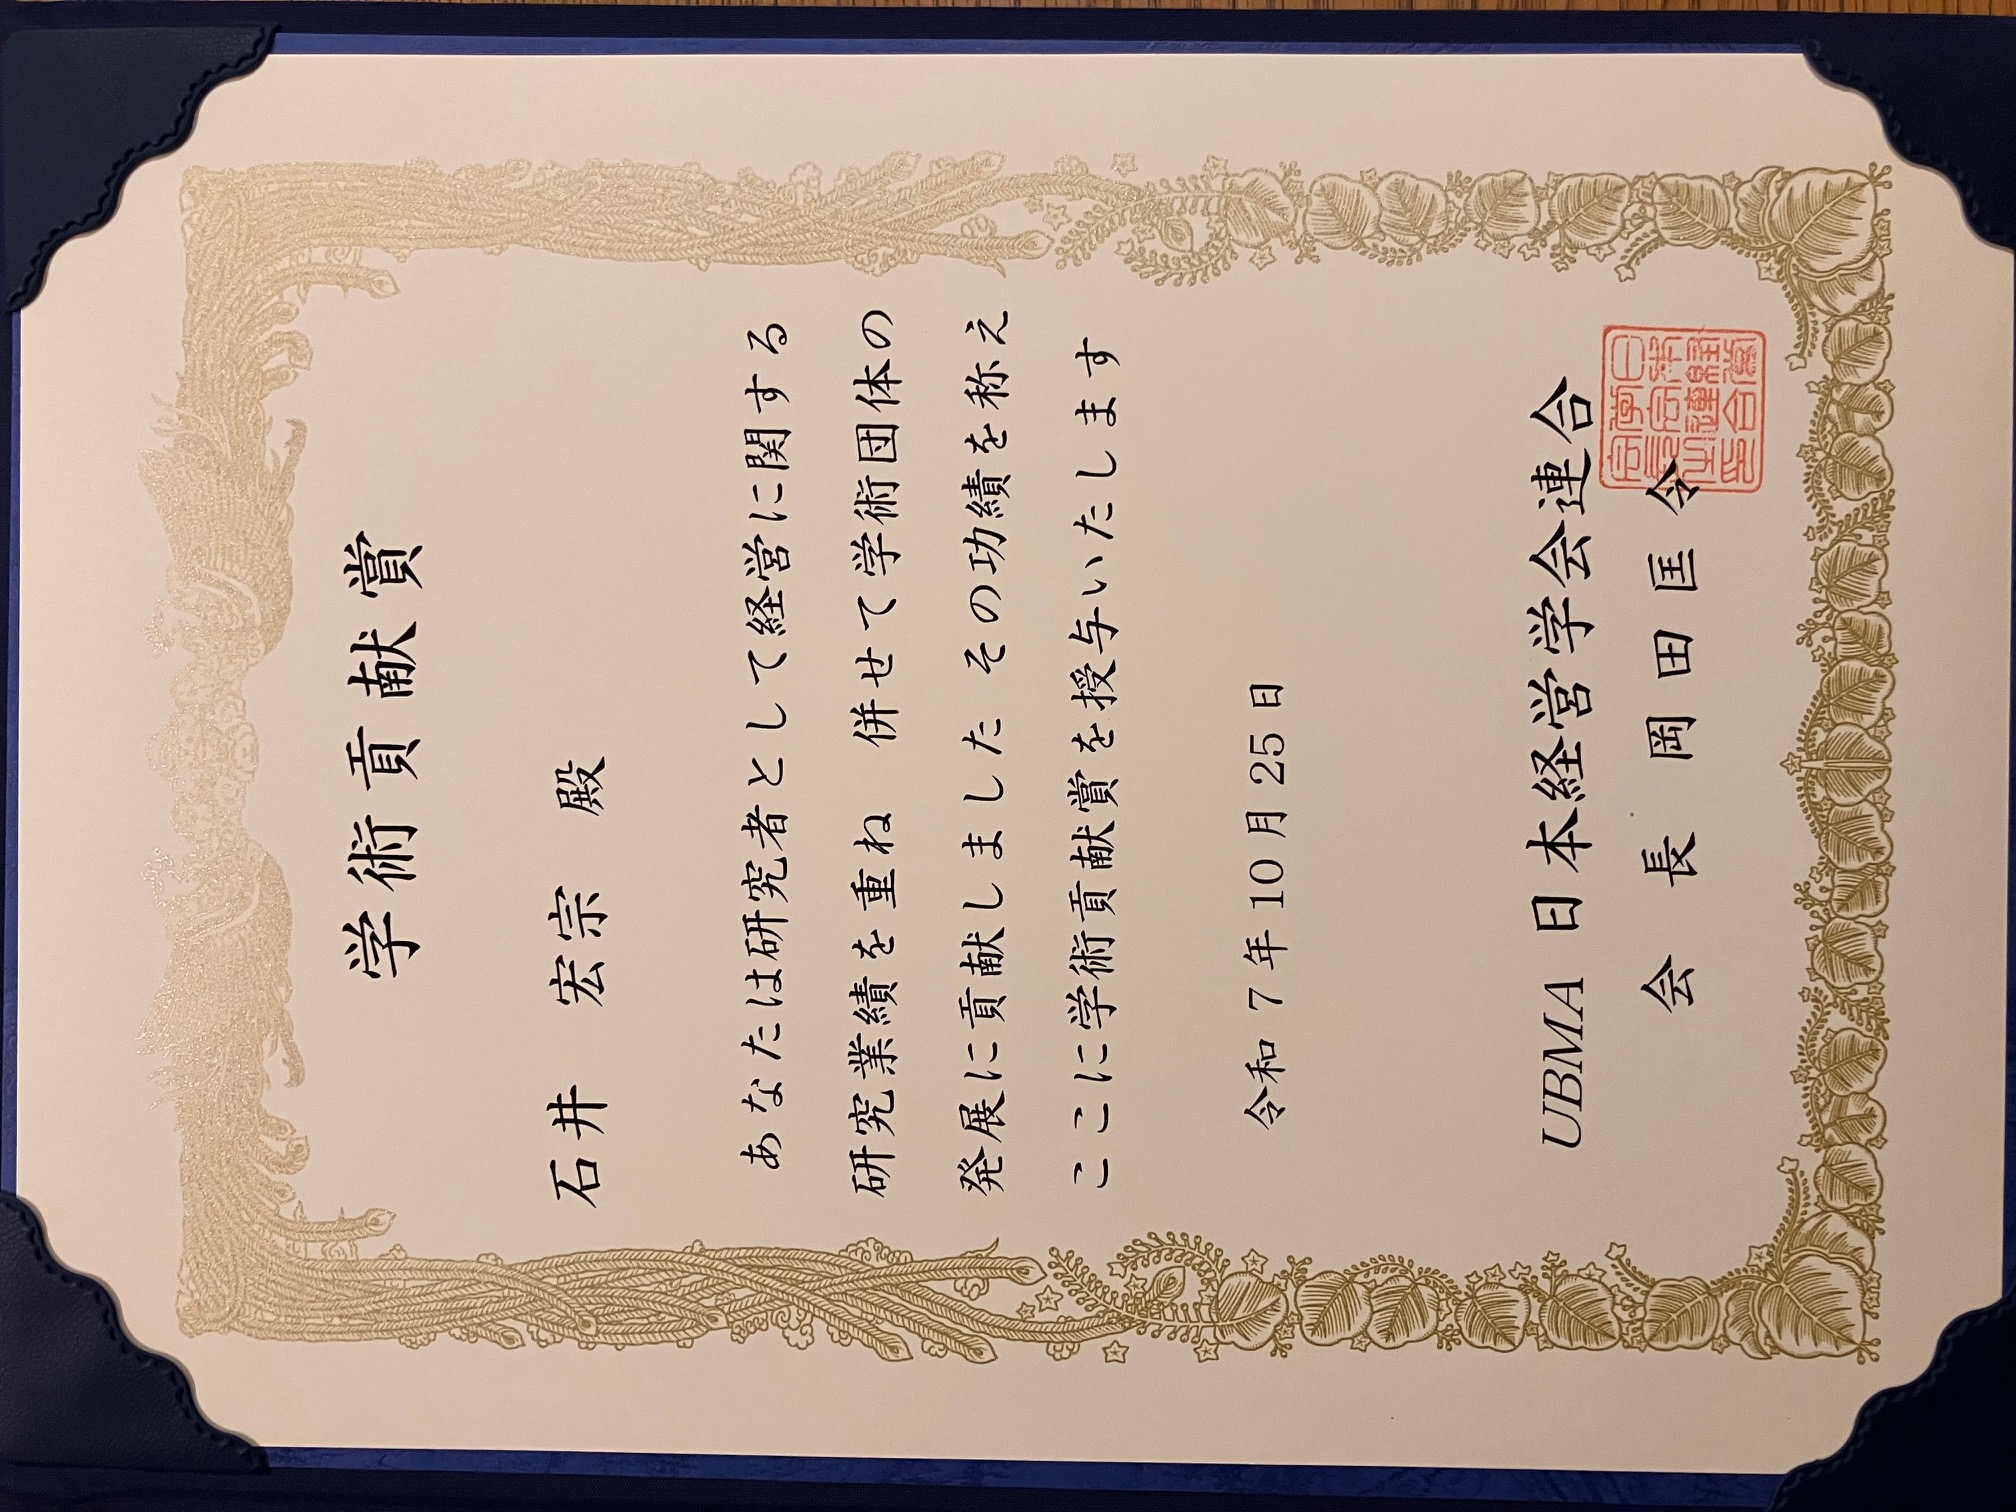 学術貢献賞
石井 宏宗 殿
あなたは研究者として経営に関する
研究業績を重ね 併せて学術団体の
発展に貢献しました その功績を称え
ここに学術貢献賞を授与いたします
令和7年10月25日
UBMA 日本経営学会連合
会長 岡田匡令